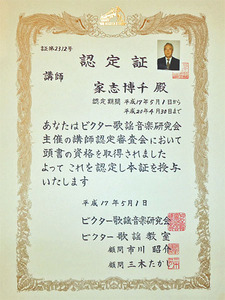 証第2312号
認定証
講師
家志博千 殿
認定期間 平成19年5月1日から
平成20年4月30日まで
あなたはビクター歌謡音楽研究会
主催の講師認定審査会において
頭書の資格を取得されました
よってこれを認定し本証を授与
いたします
平成17年5月1日
ビクター歌謡音楽研究会
ビクター歌謡教室
顧問 市川昭介
顧問 三木たかし